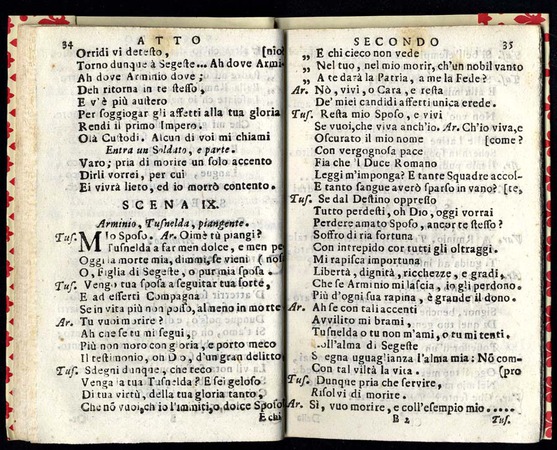 34 ATTO
Orridi vi detesto, [nio!
Torno dunque à Segeste... Ah dove Armi-
Ah dove Arminio dove;
Deh ritorna in te stesso,
E v'è più austero
Per soggiogar gli affetti alla tua gloria
Rendi il primo Impero.
Olà Custodi. Alcun di voi mi chiami
Entra un Soldato, e parte.
Varo; pria di morire un solo accento
Dirli vorrei, per cui
Ei vivrà lieto, ed io morrò contento.
SCENA IX.
Arminio, Tusnelda, piangente.
Tus. Mio Sposo. Ar. Oimè tù piangi?
Tusnelda a far men dolce, e men pe
Oggi la morte mia, dimmi, se vieni (nosa
O, Figlia di Segeste, o pur mia sposa.
Tus. Vengo tua sposa a seguitar tua sorte,
E ad esserti Compagna
Se in vita più non posso, almeno in morte
Ar. Tu vuoi morire?
Ah che se tu mi segui,
Più non moro con gloria, e porto meco
Il testimonio, oh Dio, d'un gran delitto
Tus. Sdegni dunque, che teco
Venga la tua Tusnelda? E sei geloso
Di tua virtù, della tua gloria tanto,
Che nõ vuoi, ch'io l'immiti, o dolce Sposo
E chi
SECONDO 35
„ E chi cieco non vede
„ Nel tuo, nel mio morir, ch'un nobil vanto
„ A te darà la Patria, a me la Fede?
Ar. Nò, vivi, o Cara, e resta
De' miei candidi affetti unica erede.
Tus. Resta mio Sposo, e vivi
Se vuoi, che viva anch'io. Ar. Ch'io viva, e
Oscurato il mio nome [come?
Con vergognosa pace
Fia che 'l Duce Romano
Leggi m'imponga? E tante Squadre accol-
E tanto sangue averò sparso in vano? [te,
Tus. Se dal Destino oppresso
Tutto perdesti, oh Dio, oggi vorrai
Perdere amato Sposo, ancor te stesso?
Soffro di ria fortuna
Con intrepido cor tutti gli oltraggi.
Mi rapisca importuna
Libertà, dignità, ricchezze, e gradi,
Che se Arminio mi lascia, io gli perdono.
Più d'ogni sua rapina, è grande il dono.
Ar. Ah se con tali accenti
Avvilito mi brami,
Tusnelda o tu non m'ami, o tu mi tenti.
alma di Segeste
Segna uguaglianza l'alma mia: Nõ com-
Con tal viltà la vita. (pro
Tus. Dunque pria che servire,
Risolvi di morire.
Ar. Sì, vuo morire, e coll'esempio mio.....
B 2 Tus.